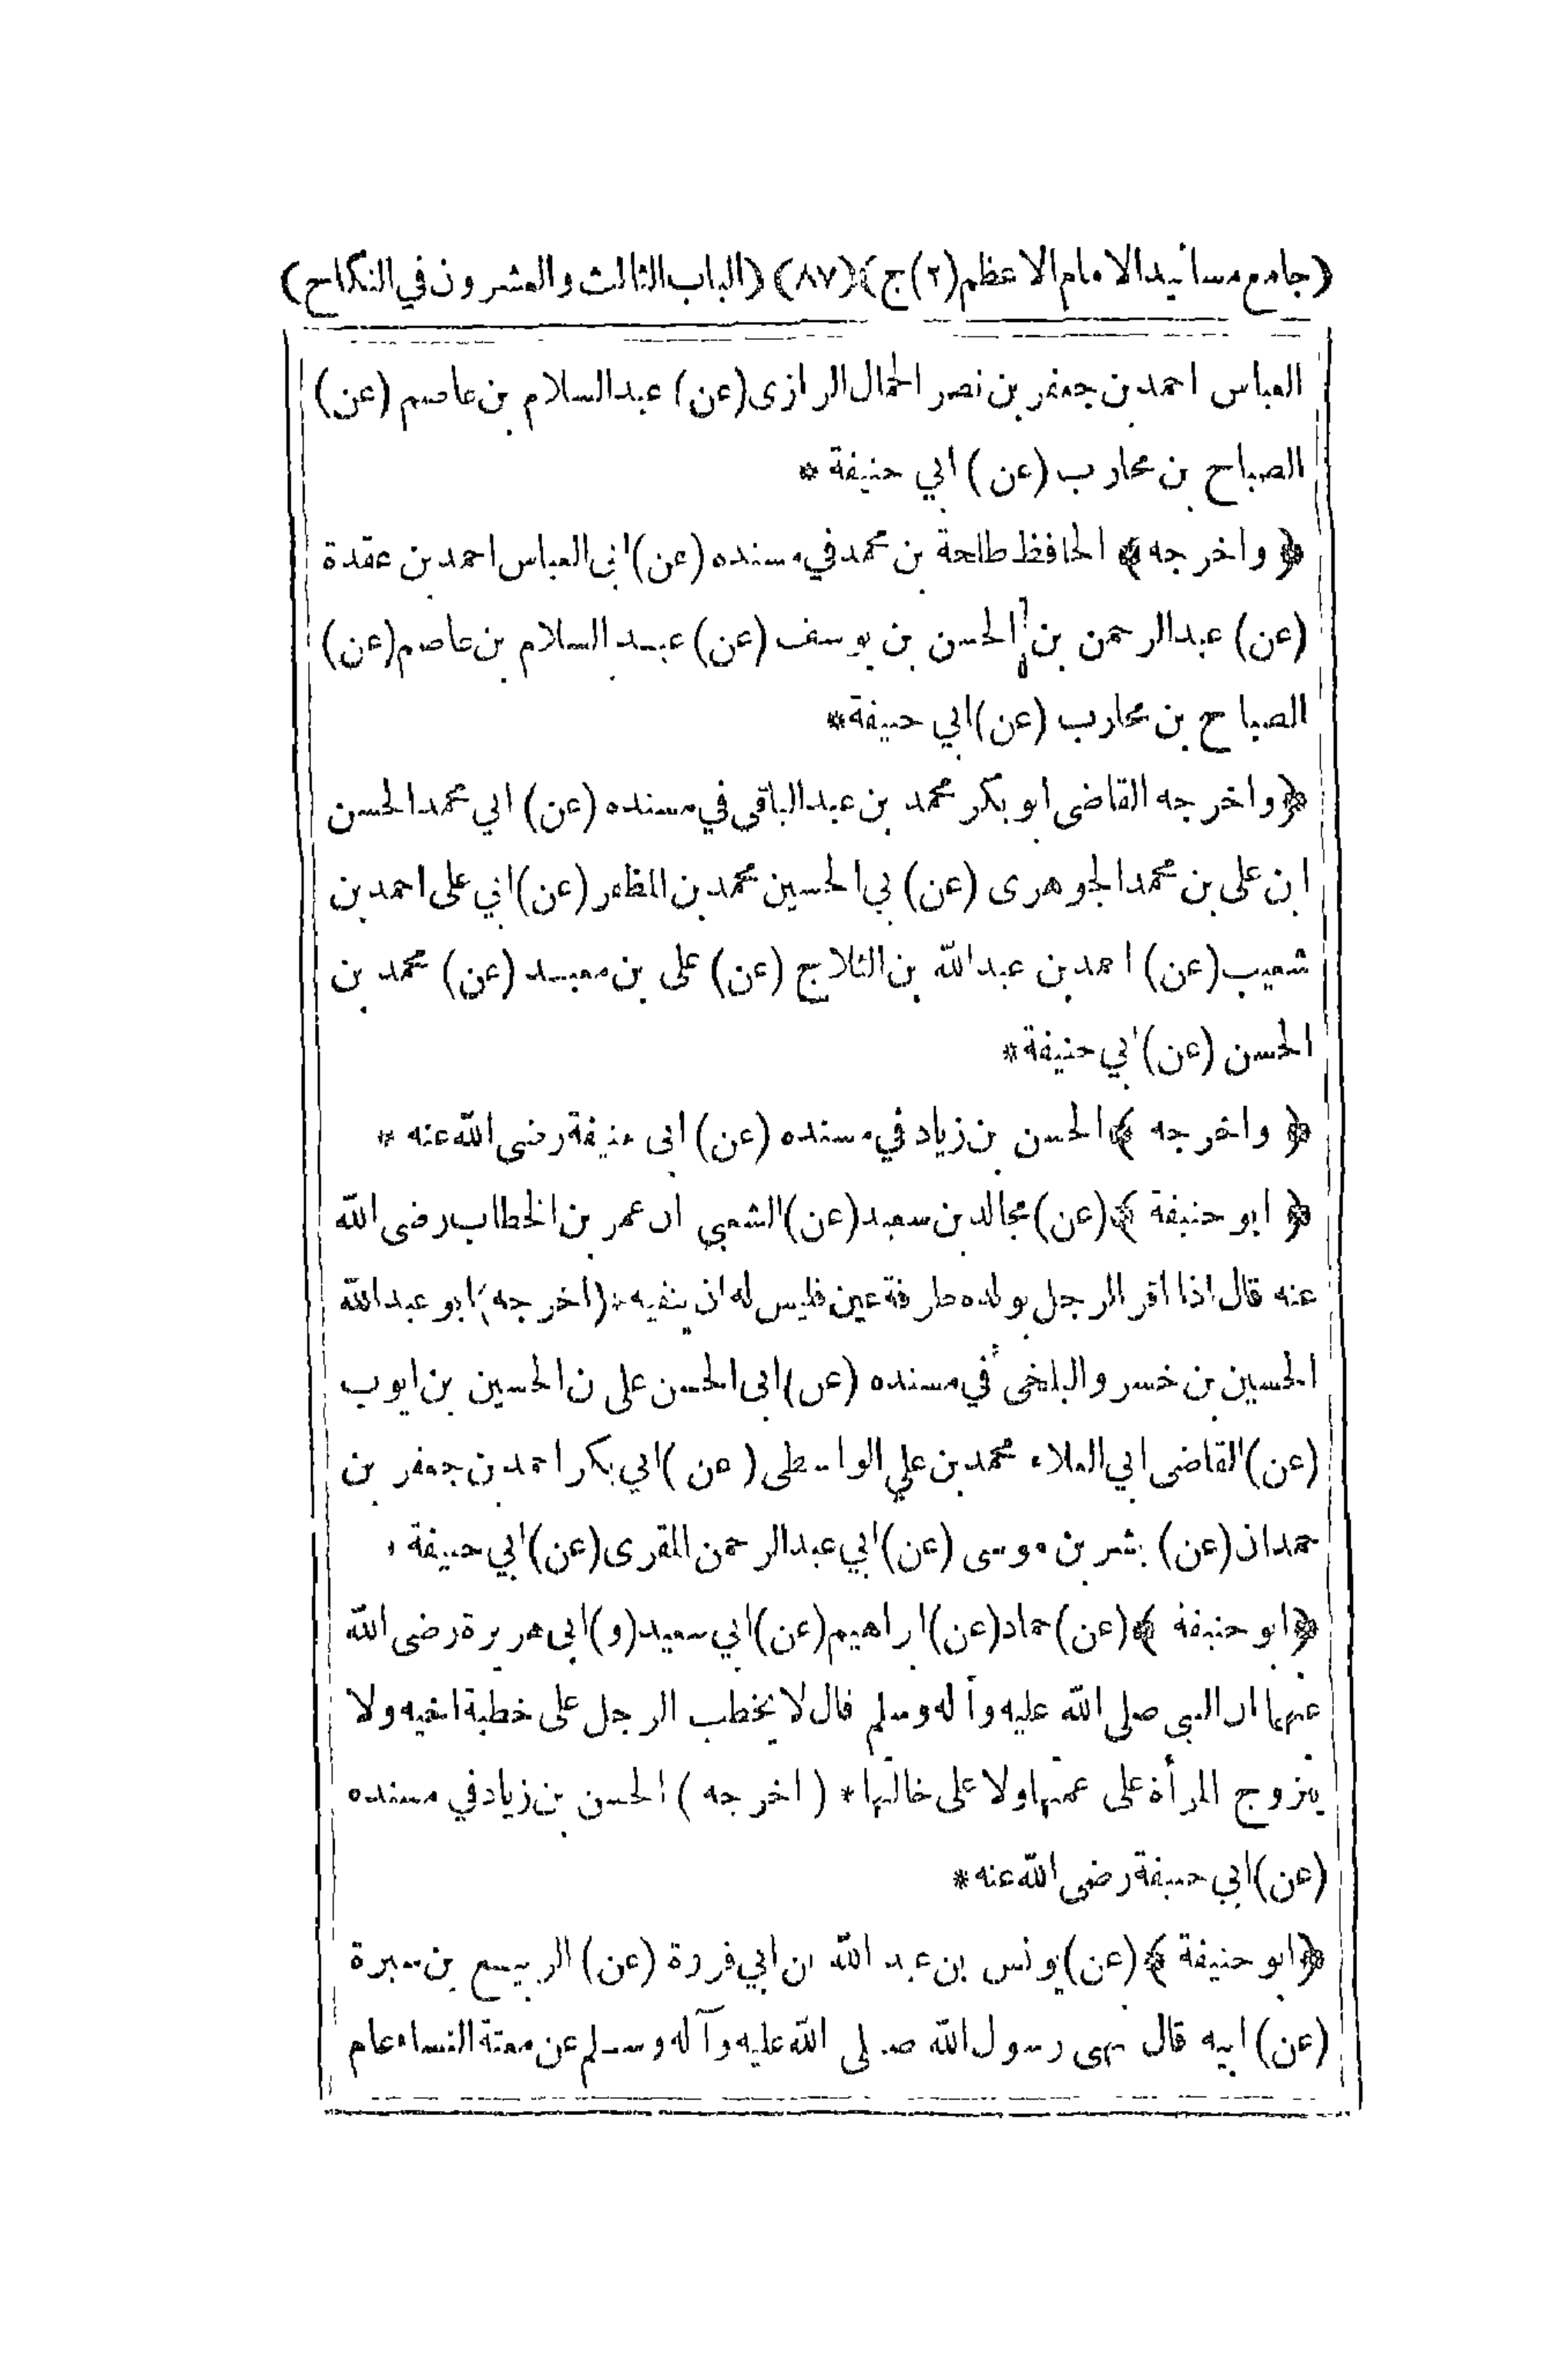 (جامع مسانيد الامام الاعظم (٢) ج) (٨٧) (الباب الثالث والعشرون في النكاح)
العباس احمد بن جعفر بن نصر الجمال الرازى (عن) عبد السلام بن عاصم (عن)
الصباح بن محارب (عن) ابي حنيفة *
﴿ واخرجه ﴾ الحافظ طلحة بن محمد في مسنده (عن) ابى العباس احمد بن عقدة
(عن) عبد الرحمن بن الحسن بن يوسف (عن) عبد السلام بن عاصم (عن)
الصباح بن محارب (عن) ابي حنيفة *
﴿ واخرجه القاضى ابو بكر محمد بن عبد الباقى في مسنده (عن) ابي محمد الحسن
ابن على بن محمد الجوهرى (عن) ابي الحسين محمد بن المظفر (عن) ابي على احمد بن
شعيب (عن) احمد بن عبد الله بن الثلاج (عن) على بن معبد (عن) محمد بن
الحسن (عن) ابي حنيفة *
﴿ واخرجه ﴾ الحسن بن زياد في مسنده (عن) ابى حنيفة رضى الله عنه *
﴿ ابو حنيفة ﴾ (عن) مجالد بن سعيد (عن) الشعبي ان عمر بن الخطاب رضى الله
عنه قال اذا اقر الرجل بولده طرفة عين فليس له ان ينفيه * (اخرجه) ابو عبد الله
الحسين بن خسرو البلخى في مسنده (عن) ابى الحسن على بن الحسين بن ايوب
(عن) القاضى ابي العلاء محمد بن علي الواسطى (عن) ابي بكر احمد بن جعفر بن
حمدان (عن) بشر بن موسى (عن) ابي عبد الرحمن المقرى (عن) ابي حنيفة *
﴿ ابو حنيفة ﴾ (عن) حماد (عن) ابراهيم (عن) ابي سعيد (و) ابى هريرة رضى الله
عنهما ان النبى صلى الله عليه وآله وسلم قال لا يخطب الرجل على خطبة اخيه ولا
يتزوج المرأة على عمتها ولا على خالتها * (اخرجه) الحسن بن زياد في مسنده
(عن) ابي حنيفة رضى الله عنه *
﴿ ابو حنيفة ﴾ (عن) يونس بن عبد الله بن ابي فروة (عن) الربيع بن سبرة
(عن) ابيه قال نهى رسول الله صلى الله عليه وآله وسلم عن متعة النساء عام